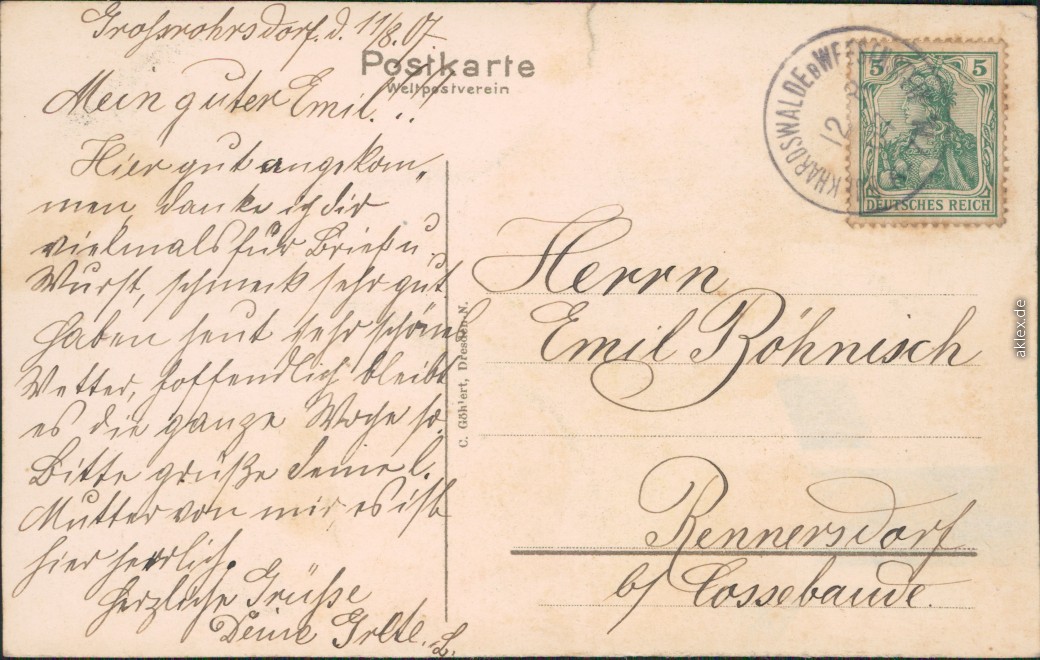 Grossröhrsdorf. d. 11/8. 07
Postkarte
Weltpostverein
Mein guter Emil.!!
Hier gut angekom„
men, danke ich dir
vielmals für Brief u.
Wurst, schmeckt sehr gut
haben heut sehr schönes
Wetter, hoffendlich bleibt
es die ganze Woche so.
Bitte grüße deine l.
Mutter von mir, es ist
hier herrlich.
Herzliche Grüsse
Deine Gretel. L.
C. Göhlert, Dresden-N.
BURKHARDSWALDE B WEESEN
12 8
5 5
DEUTSCHES REICH
Herrn
Emil Böhnisch
Rennersdorf
b/ Cossebaude.
aklex.de